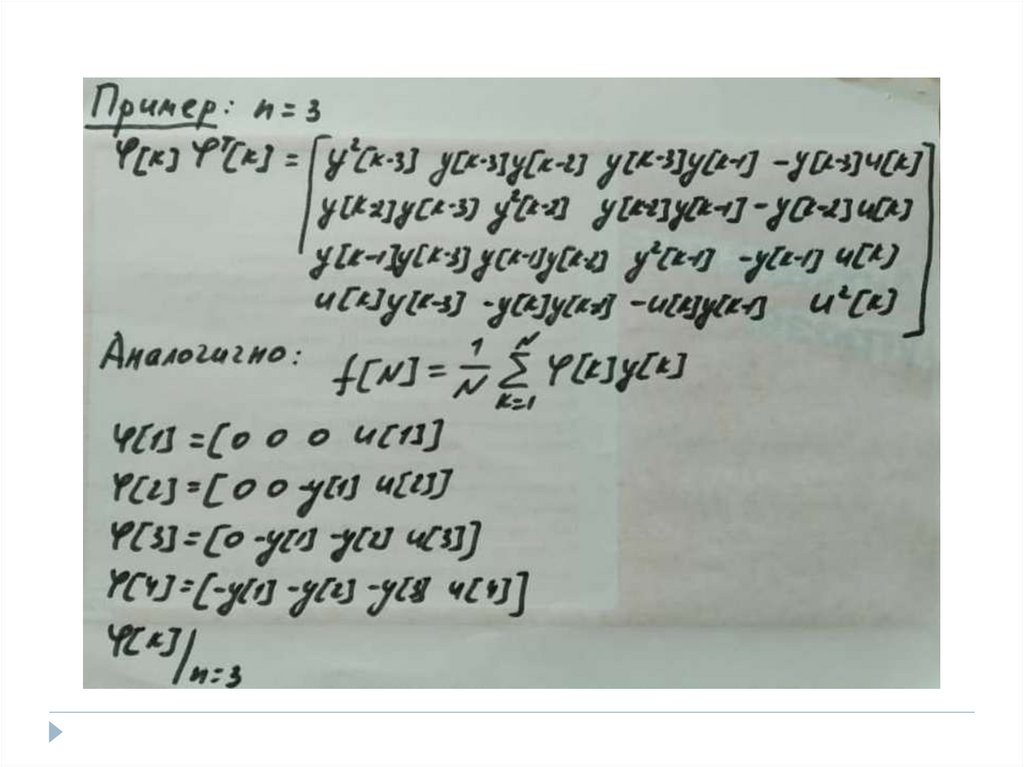 Пример: n = 3
φ[k] φᵀ[k] = [ y²[k-3] y[k-3]y[k-2] y[k-3]y[k-1] -y[k-3]u[k]
y[k-2]y[k-3] y²[k-2] y[k-2]y[k-1] -y[k-2]u[k]
y[k-1]y[k-3] y[k-1]y[k-2] y²[k-1] -y[k-1] u[k]
u[k]y[k-3] -y[k]y[k-2] -u[k]y[k-1] u²[k] ]
Аналогично: f[N] = 1/N ∑ₖ₌₁ᴺ φ[k]y[k]
φ[1] = [0 0 0 u[1]]
φ[2] = [0 0 -y[1] u[2]]
φ[3] = [0 -y[1] -y[2] u[3]]
φ[4] = [-y[1] -y[2] -y[3] u[4]]
φ[k]|n=3